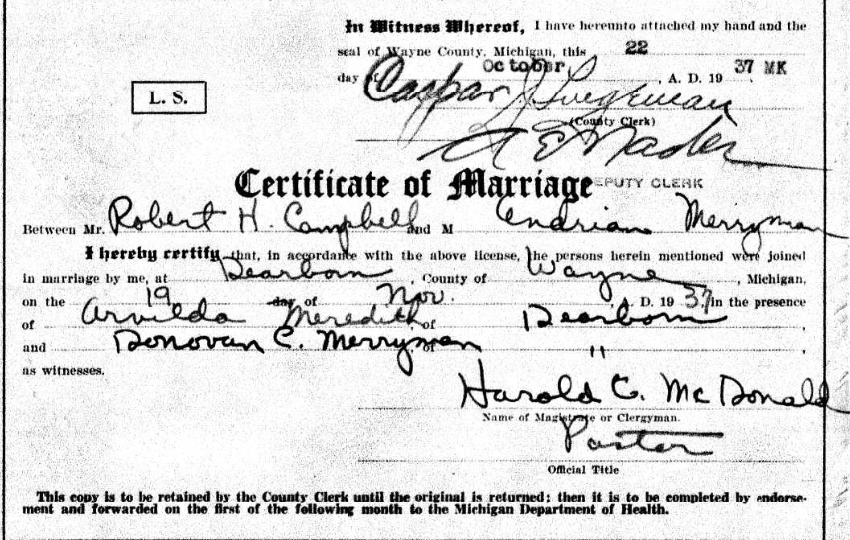 In Witness Whereof, I have hereunto attached my hand and the
seal of Wayne County, Michigan, this 22
day of October, A. D. 19 37 MK
L. S.
Caspar J. Lingeman
(County Clerk)
A E Nader
DEPUTY CLERK
Certificate of Marriage
Between Mr. Robert H. Campbell and M Endrian Merryman
I hereby certify that, in accordance with the above license, the persons herein mentioned were joined
in marriage by me, at Dearborn, County of Wayne, Michigan,
on the 19 day of Nov. A. D. 1937 in the presence
of Arvilda Meredith of Dearborn,
and Donovan C. Merryman of ",
as witnesses.
Harold C. McDonald
Name of Magistrate or Clergyman.
Pastor
Official Title
This copy is to be retained by the County Clerk until the original is returned; then it is to be completed by endorse-
ment and forwarded on the first of the following month to the Michigan Department of Health.